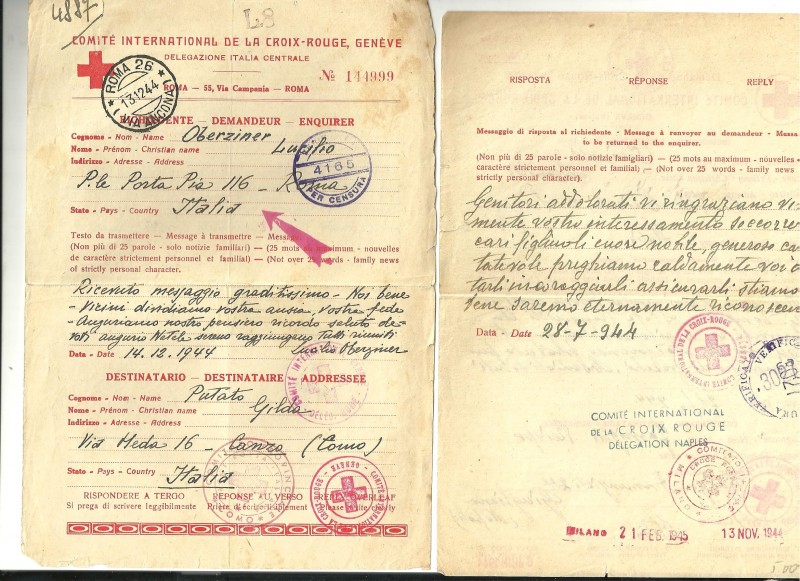 4887
L8
COMITÉ INTERNATIONAL DE LA CROIX-ROUGE, GENÈVE
DELEGAZIONE ITALIA CENTRALE
№ 144999
ROMA — 55, Via Campania — ROMA
ROMA 26
13.12.44
(VIA ANCONA)
RICHIEDENTE — DEMANDEUR — ENQUIRER
Cognome - Nom - Name Oberziner
Nome - Prénom - Christian name Lucilio
Indirizzo - Adresse - Address
P.le Porta Pia 116 - Roma
4165
PER CENSURA
Stato - Pays - Country Italia
Testo da trasmettere — Message à transmettre — Message
(Non più di 25 parole - solo notizie familiari) — (25 mots au maximum - nouvelles
de caractère strictement personnel et familial) — (Not over 25 words - family news
of strictly personal character).
Ricevuto messaggio graditissimo - Noi bene -
Vicini dividiamo vostra ansia, vostra fede -
Auguriamo nostro pensiero ricordo saluto de-
voti augurio Natale sereno raggiungano tutti riuniti
Data - Date 14.12.1944 Lucilio Oberziner
DESTINATARIO — DESTINATAIRE — ADDRESSEE
Cognome - Nom - Name Putato
Nome - Prénom - Christian name Gilda
Indirizzo - Adresse - Address
Via Meda 16 - Canzo (Como)
Stato - Pays - Country Italia
RISPONDERE A TERGO RÉPONSE AU VERSO REPLY OVERLEAF
Si prega di scrivere leggibilmente Prière d'écrire lisiblement Please write clearly
RISPOSTA RÉPONSE REPLY
Messaggio di risposta al richiedente - Message à renvoyer au demandeur - Messa
to be returned to the enquirer.
(Non più di 25 parole - solo notizie famigliari) — (25 mots au maximum - nouvelles
de caractère strictement personnel et familial) — (Not over 25 words - family news
strictly personal character).
Genitori addolorati vi ringraziano vi-
mente vostro interessamento soccorre
cari figliuoli cuore nobile, generoso ca
tatevole preghiamo caldamente voi a
tarli ragguagli assicurarli stiamo
bene saremo eternamente riconoscen
Data - Date 28-7-944
COMITÉ INTERNATIONAL
DE LA CROIX ROUGE
DÉLÉGATION NAPLES
MILANO 21 FEB. 1945 13 NOV. 1944